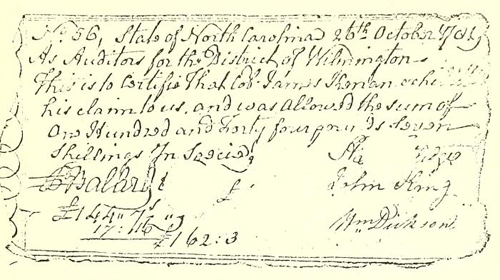 No. 56, State of North Carolina 26th October 1781,
As Auditors for the District of Wilmington
This is to Certifie That Col. James Kenan
his claim to us, and was allowed the sum of
One Hundred and Forty four pounds Seven
Shillings In Specie
John King
£144" 7s
17:16
£162:3
Wm Dickson